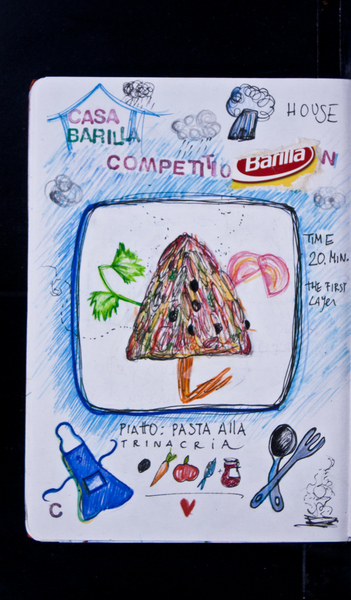 CASA
BARILLA
HOUSE
COMPETITIO Barilla N
TIME
20. MIN.
THE FIRST
LAYER
PIATTO: PASTA ALLA
TRINACRIA
C